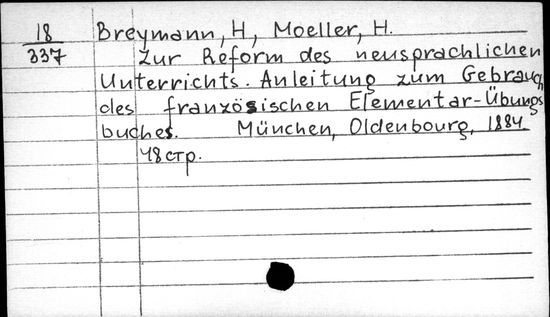 18 Breymann, H, Moeller, H.
337 Zur Reform des neusprachlichen
Unterrichts. Anleitung zum Gebrauch
des französischen Elementar-Übungs
buches. München, Oldenbourg, 1884
48 стр.